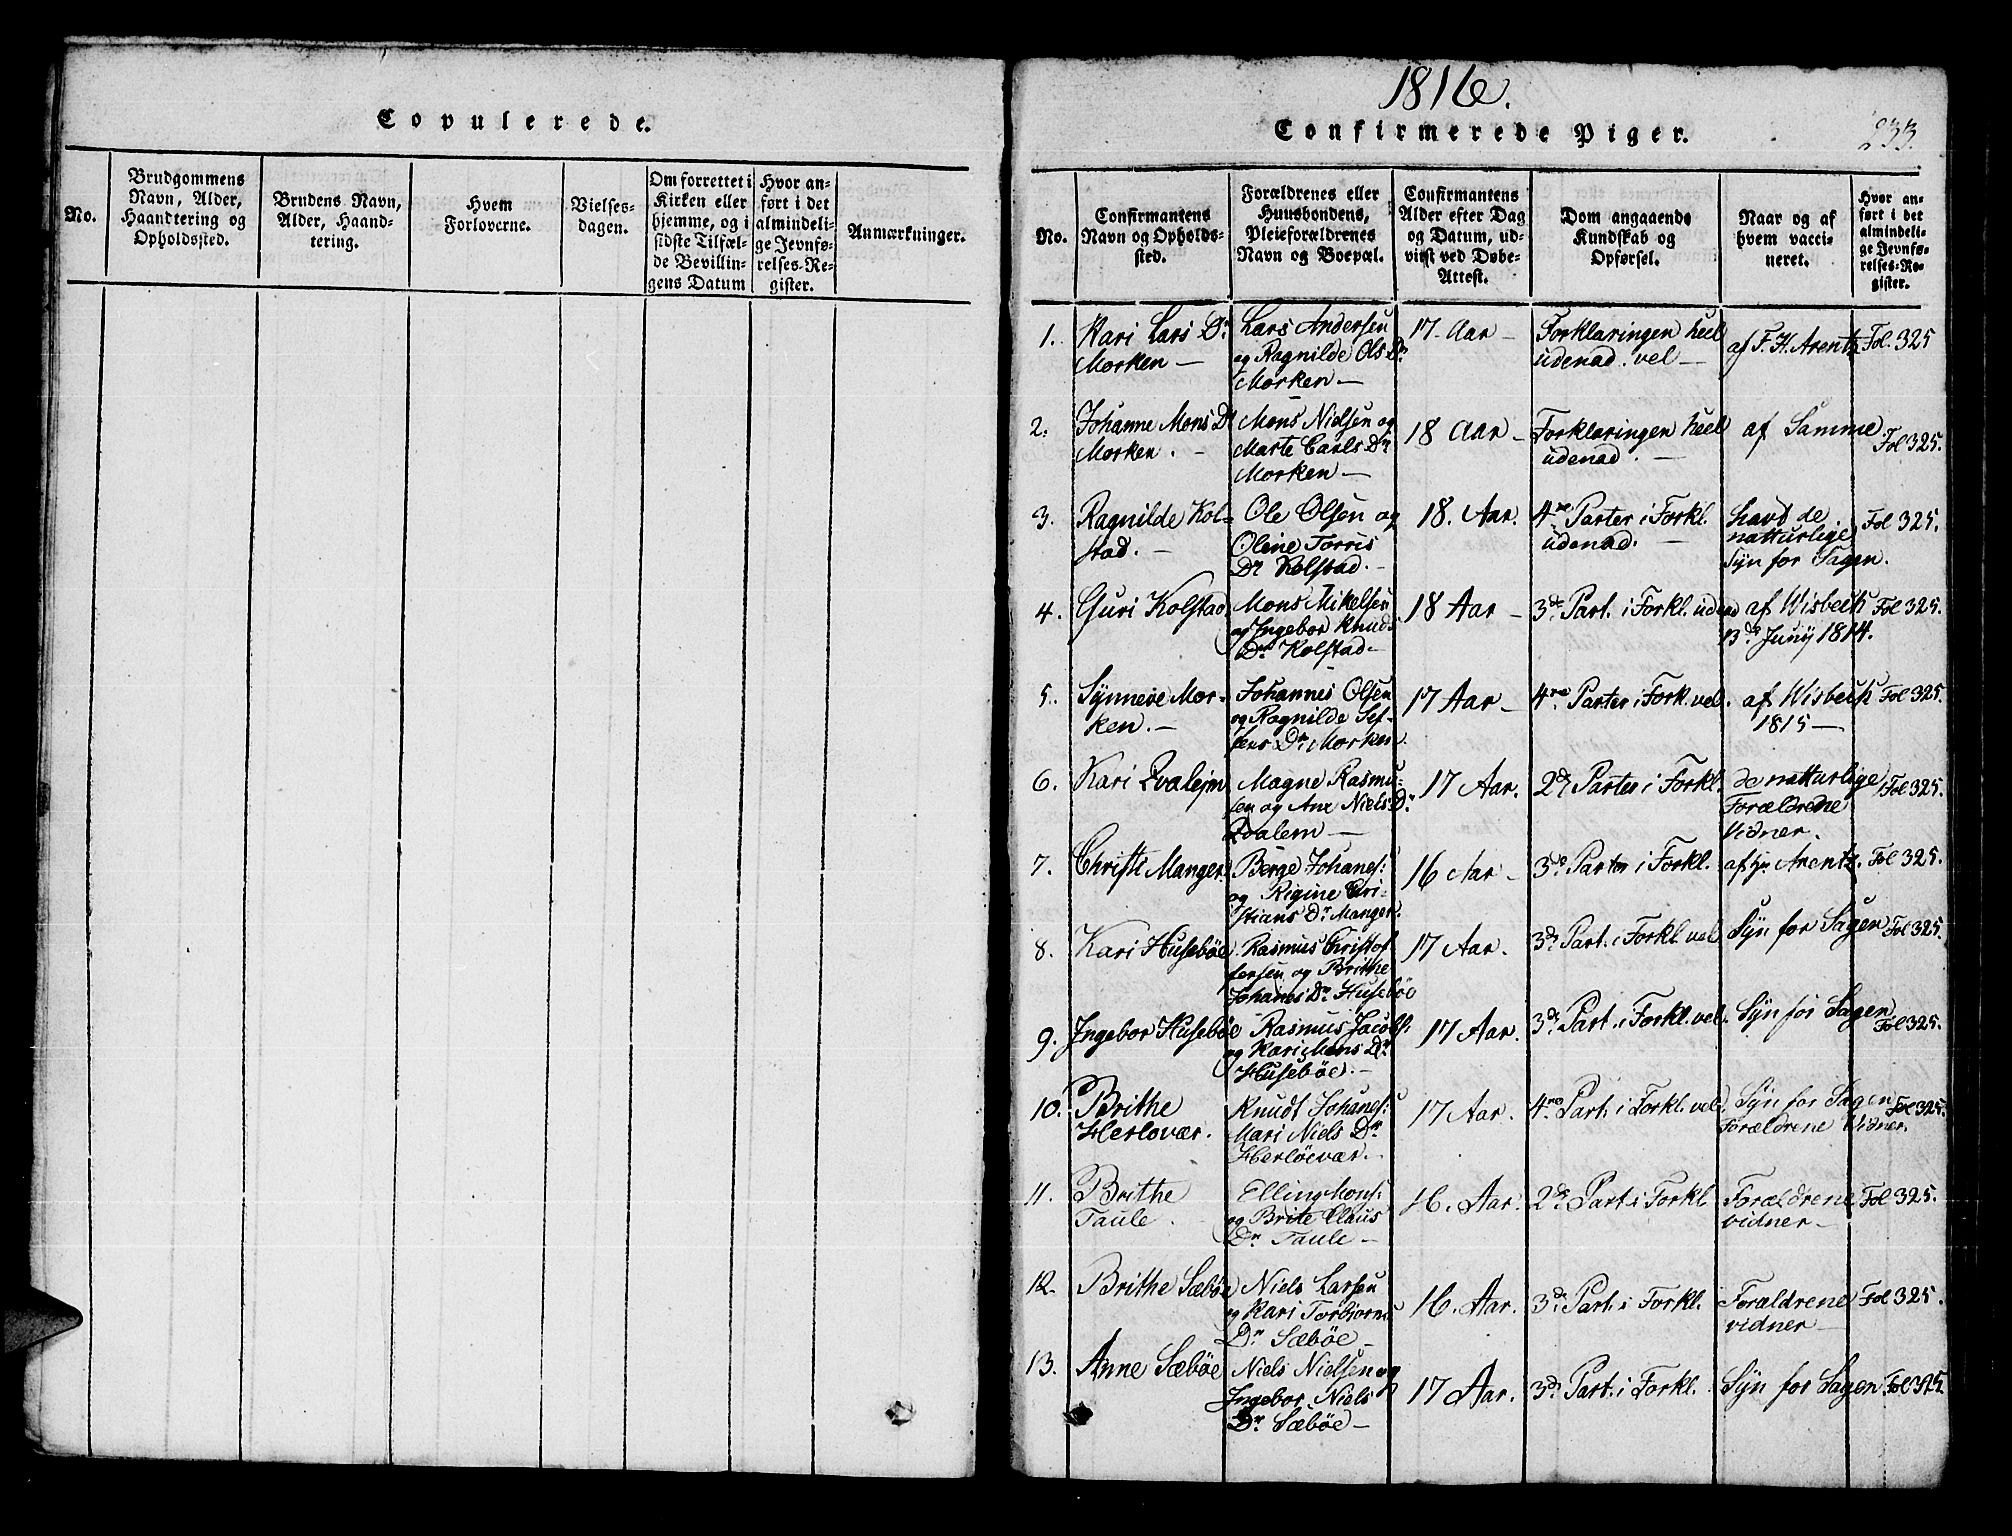 Copulerede.
No.
Brudgommens
Navn, Alder,
Haandtering og
Opholdssted.
Brudens Navn,
Alder, Haand-
tering.
Hvem
Forloverne.
Vielses-
dagen.
Om forrettet i
Kirken eller
hjemme, og i
sidste Tilfæl-
de Bevillin-
gens Datum
Hvor an-
ført i det
almindeli-
ge Jevnfø-
relses-Re-
gister.
Anmærkninger.
1816.
Confirmerede Piger.
233.
No.
Confirmantens
Navn og Opholds-
sted.
Forældrenes eller
Huusbondens,
Pleieforældrenes
Navn og Boepæl.
Confirmantens
Alder efter Dag
og Datum, ud-
viist ved Døbe-
Attest.
Dom angaaende
Kundskab og
Opførsel.
Naar og af
hvem vacci-
neret.
Hvor an-
ført i det
almindeli-
ge Jevnfø-
relses-Re-
gister.
1. Kari Lars Dr
Morken —
Lars Andersen
og Ragnilde Ols Dr
Morken —
17. Aar —
Forklaringen heel
udenad. vel —
af F. H. Arentz
Fol. 325
2. Johanne Mons Dr
Morken. —
Mons Nielsen og
Marte Carls Dr
Morken —
18 Aar —
Forklaringen heel
udenad. —
af Samme
Fol 325.
3. Ragnilde Kol-
stad. —
Ole Olsen og
Oline Torris
Dr Kolstad. —
18. Aar.
4re Parter i Forkl.
udenad. —
havt de
natturlige
Syn for Sagen.
Fol 325.
4. Guri Kolstad
Mons Mikelsen
og Ingebor Knuds
Dr Kolstad —
18 Aar —
3de Part. i Forkl. uden
af Wisbech
13de Junij 1814.
Fol 325.
5. Synneve Mor-
ken. —
Johannes Olsen
og Ragnilde Sef-
fens Dr Morken.
17 Aar —
4re Parter i Fork. vel.
af Wisbech
1815 —
Fol 325.
6. Kari Qvalejm
Magne Rasmu-
sen og Ane Niels Dr
Qvalem —
17 Aar.
2de Parter i Forkl.
de natturlige
Forældrene
Vidner.
Fol 325.
7. Christi Manger
Berge Johanes:
og Rigine Cri-
stians Dr Manger.
16 Aar —
3de Parter i Forkl.
af hr. Arentz.
Fol 325.
8. Kari Husebøe
Rasmus Christof
fersen og Brithe
Johanes Dr Husebøe
17 Aar.
3de Part. i Forkl. vel
Syn for Sagen
Fol 325.
9. Ingebor Husebøe
Rasmus Jacobs:
og Kari Mons Dr
Husebøe. —
17 Aar.
3de Part. i Forkl. vel.
Syn for Sagen
Fol 325.
10. Brithe
Herlovær.
Knudt Johanes:
Mari Niels Dr
Herløevær. —
17 Aar.
4re Part. i Forkl. vel.
Syn for Sagen
Forældrene Vidner.
Fol 325.
11. Brithe
Taule.
Elling Mons:
og Brite Claus
Dr Taule —
16. Aar.
2de Part i Forkl
Forældrene
vidner —
Fol 325.
12. Brithe Sæbøe
Niels Larsen
og Kari Torbiorns
Dr Sæbøe —
16. Aar.
3de Part. i Forkl.
Forældrene
vidner —
Fol 325.
13. Anne Sæbøe
Niels Nielsen og
Ingebor Niels
Dr Sæbøe —
17 Aar.
3de Part. i Forkl.
Syn for Sagen
Fol 325.